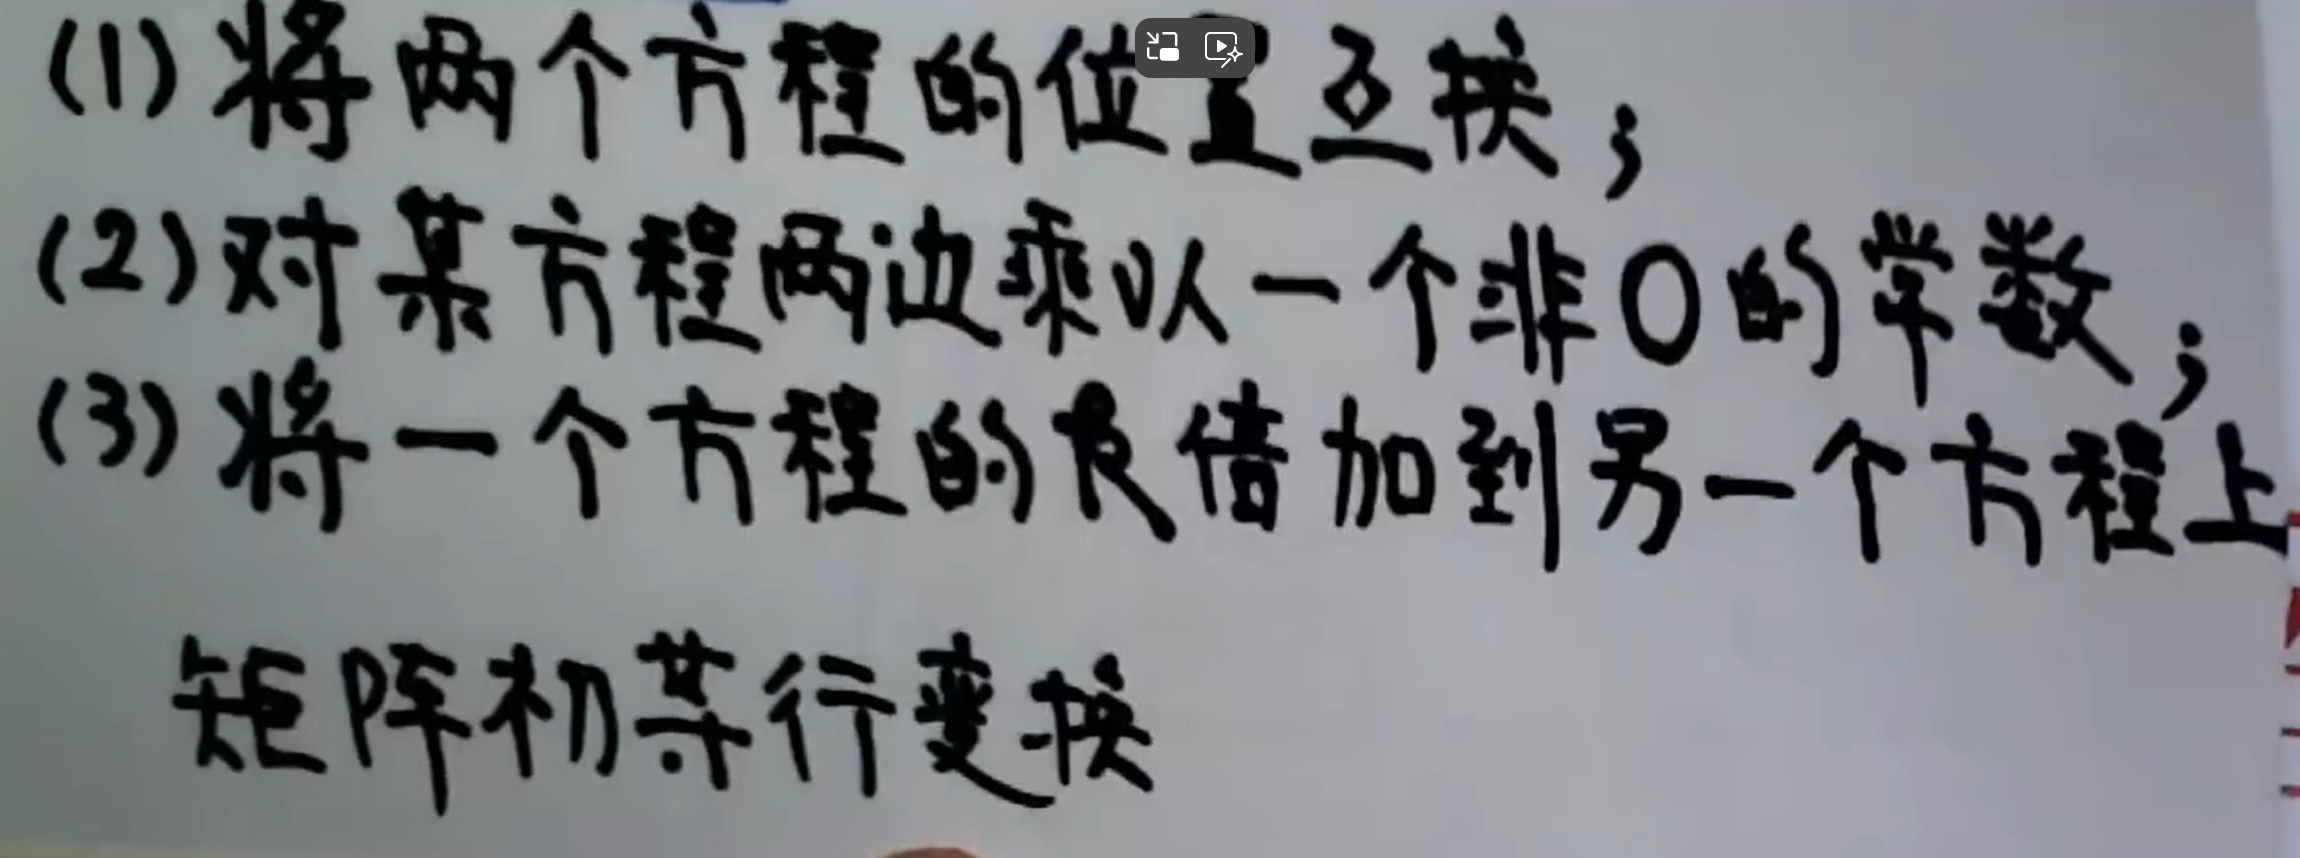 (1)将两个方程的位置互换；
(2)对某方程两边乘以一个非0的常数；
(3)将一个方程的k倍加到另一个方程上
矩阵初等行变换